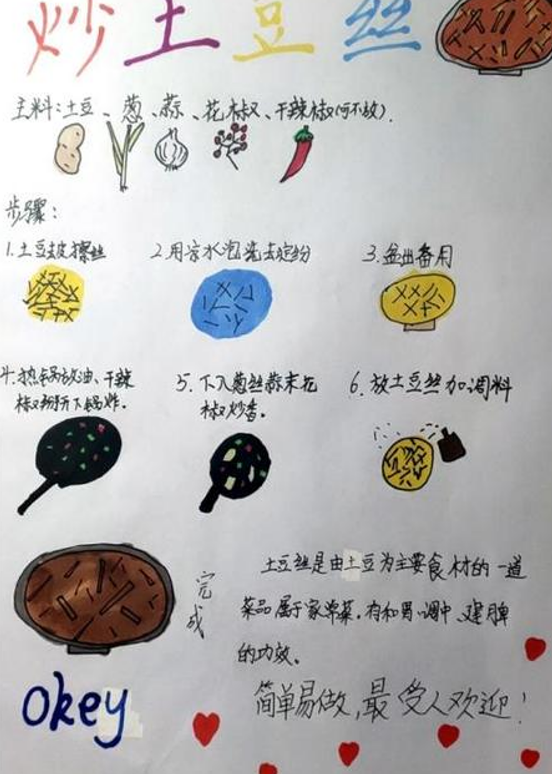 炒土豆丝
主料:土豆、葱、蒜、花椒、干辣椒(可不放).
步骤:
1.土豆去皮擦丝
2.用凉水泡洗去淀粉
3.盆出备用
4.热锅放油、干辣
椒掰开下锅炸.
5.下入葱丝蒜末花
椒炒香.
6.放土豆丝加调料
完成
土豆丝是由土豆为主要食材的一道
菜品属于家常菜.有和胃、调中、健脾
的功效.
okey
简单易做,最受人欢迎!